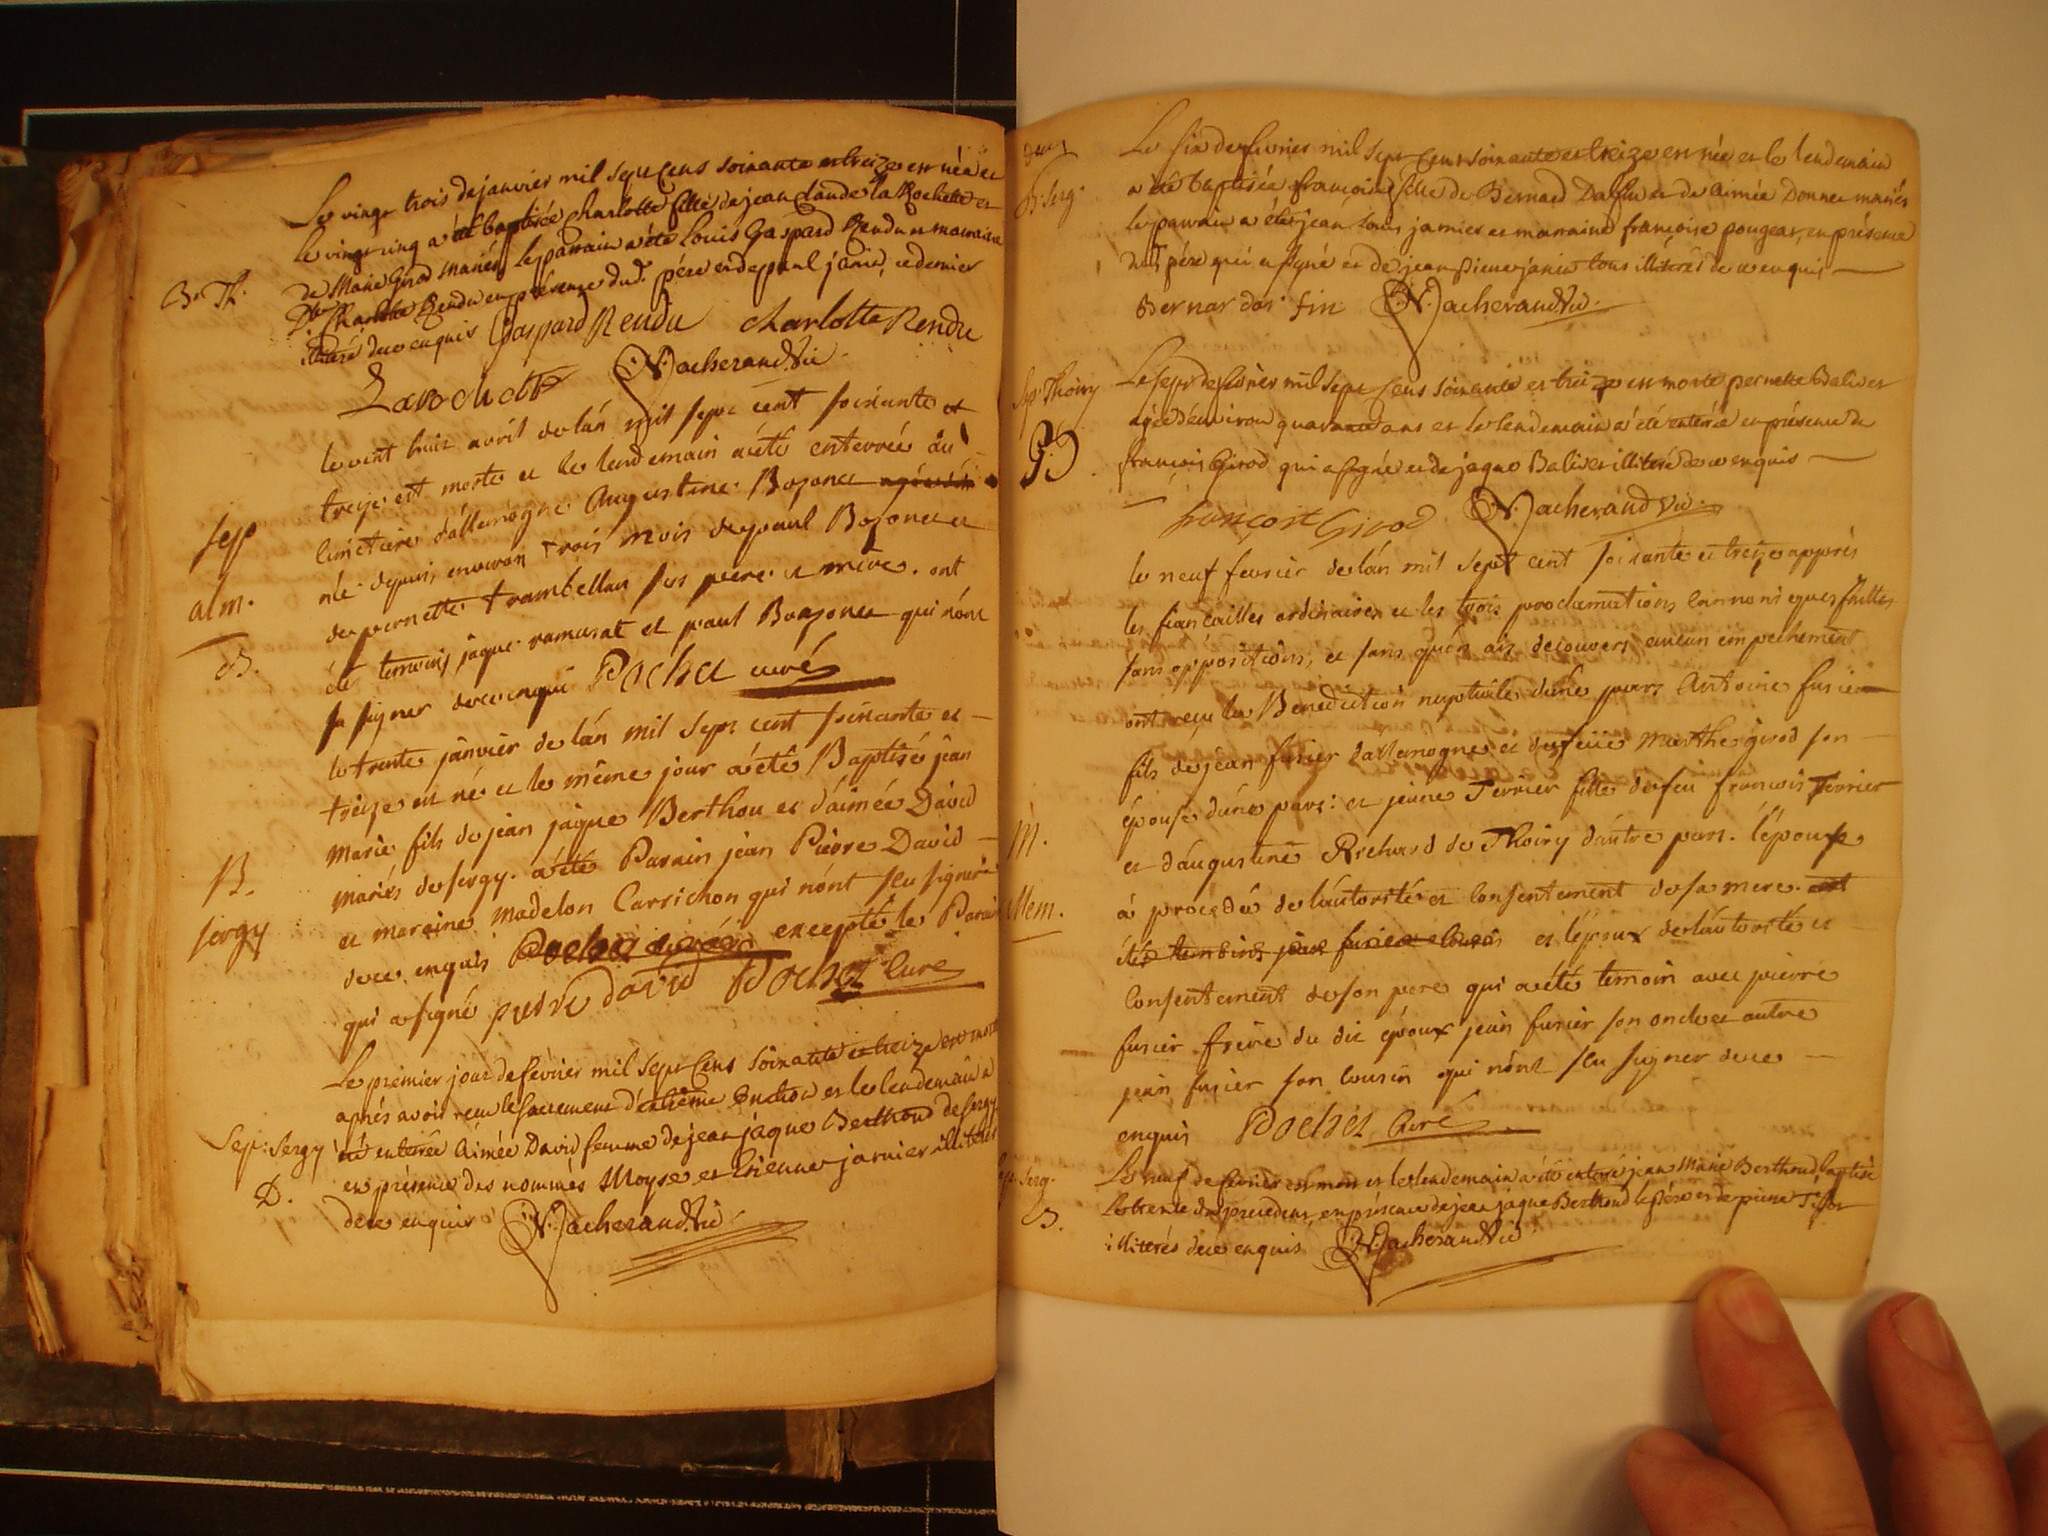 Le vingt trois de janvier mil sept Cens soixante et treize est née et
le vingt cinq a été baptisée charlotte fille de jean claude la Rochette et
B. Th.
de Marie Girod mariés, le parrain a été Louis Gaspard Rendu et marraine
Dlle Charlotte Rendu en présence dud. père et de paul janin, ce dernier
illiteré de ce enquis Gaspard Rendu charlotte Rendu
Larochette N. Jacherand Vic.
le vint huit avril de lán mil sept cent soixante et
treize est morte et le lendemain a été enterrée au
sep
cimetiere d'allemogne Augustine Bozonet
alm.
née depuis environ trois mois de paul Bozonet et
de pernette trambellan ses pere et mère. ont
D.
été temoins jaque ramusat et paul Bozonet qui nónt
su signer de ce enqui Pochet curé
le trente janvier de lán mil sept cent soixante et
treize est né et le même jour a été Baptisé jean
marie fils de jean jaque Berthou et d'aimée David
B.
mariés de sergy. a été Parain jean Pierre David
sergy
et maraine madelon Carrichon qui nónt seu signer
de ce enquis Pochet curé excepté le Parain
qui a signé pierre david Pochet Curé
Le premier jour de février mil sept Cens soixante et treize est morte
après avoir reçu le sacrement d'extrême onction et le lendemain a
Sep. Sergy
été enterée Aimée David femme de jean jaque Berthoud de sergy
D.
en présence des nommés Moyse et Etienne jarnier illiterés
de ce enquis N. Jacherand Vic.
Le six de fevrier mil sept Cens soixante et treize est née et le lendemain
B. Serg.
a été baptisée françoise fille de Bernard Dalfin et de Aimée Donnet mariés
le parrain a été jean Louis jarnier et marraine françoise pougeat, en présence
dud. père qui a signé et de jean Pierre janin tous illiterés de ce enquis
Bernar dos fin N. Jacherand Vic.
Le sept de fevrier mil sept Cens soixante et treize est morte pernette Balivet
Sep. Thoiry
agée d'environ quarante ans et le lendemain a été enterée en présence de
D.
françois Girod qui a signé et de jaque Balivet illiteré de ce enquis
françoit Girod N. Jacherand Vic.
le neuf fevrier de lán mil sept cent soixante et treize apprés
les fiançailles ordinaires et les trois proclamations cannoniques faittes
sans oppositions, et sans qu'on ait decouvert aucun empechement
ont reçu la Benediction nuptiale dúne part Antoine fusier
fils de jean fusier d'allemogne et de feüe Marthe girod son
épouse dúne part: et jeane Tevrier fille de feu francois Tevrier
M.
et d'augustine Richard de Thoiry d'autre part. l'épouse
a procedé de l'autorité et consentement de sa mere. ont
Allem.
été temoins jean fusier cousin et l'époux de l'autorité et
consentement de son pere qui a été temoin avec pierre
fusier frere du dit époux jean fusier son oncle et autre
jean fusier son cousin qui nónt seu signer de ce
enquis Pochet Curé
Sep. Serg.
Le neuf de fevrier est mort et le lendemain a été enteré jean Marie Berthoud baptisé
le trente du precedent, en présence de jean jaque Berthoud le père et de pierre
D.
illiterés de ce enquis N. Jacherand Vic.